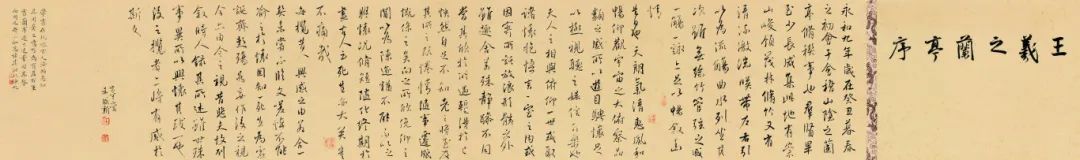 王羲之蘭亭序
永和九年歲在癸丑暮春
之初會于會稽山陰之蘭
亭脩稧事也羣賢畢
至少長咸集此地有崇
山峻領茂林脩竹又有
清流激湍暎帶左右引
以為流觴曲水列坐其
次雖無絲竹管弦之盛
一觴一詠亦足以暢敘幽
情
是日也天朗氣清惠風和
暢仰觀宇宙之大俯察品
類之盛所以遊目騁懷足
以極視聽之娛信可樂也
夫人之相與俯仰一世或取
諸懷抱悟言一室之內或
因寄所託放浪形骸之外
雖趣舍萬殊靜躁不同
當其欣於所遇暫得於己
怏然自足不知老之將至及
其所之既惓情隨事遷感
慨係之矣向之所欣俛仰之
間以為陳迹猶不能不以之
興懷況脩短隨化終期於
盡古人云死生亦大矣豈
不痛哉
每攬昔人興感之由若合一
契未嘗不臨文嗟悼不能
喻之於懷固知一死生為虛
誕齊彭殤為妄作後之視
今亦由今之視昔悲夫故列
敘時人錄其所述雖世殊
事異所以興懷其致一也
後之攬者亦將有感於
斯文